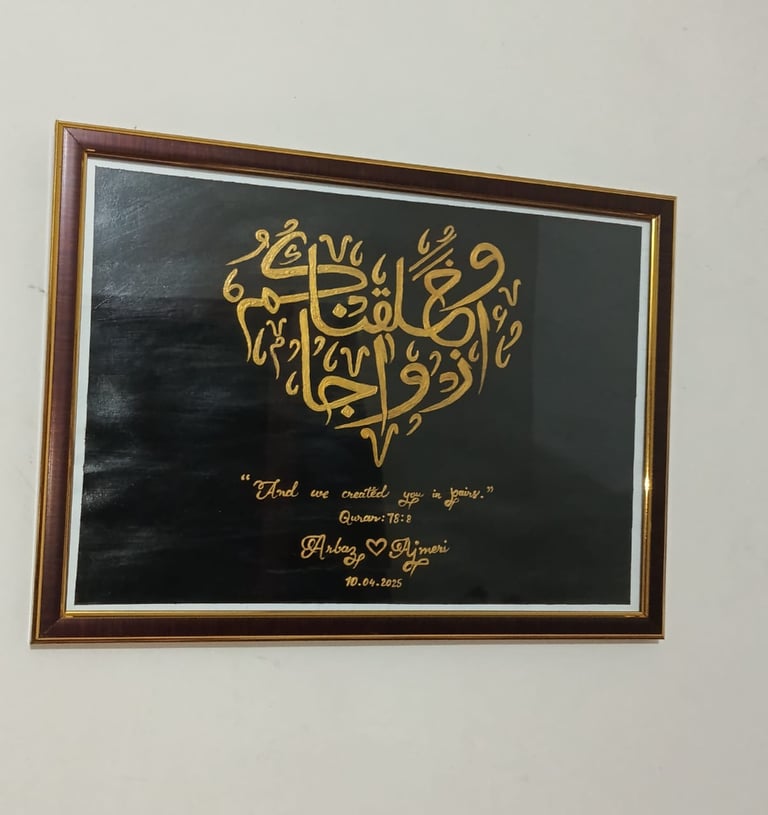 وخلقناكم
أزواجا
“And we created you in pairs.”
Quran:78:8
Arbaz ♡ Ajmeri
10.04.2025